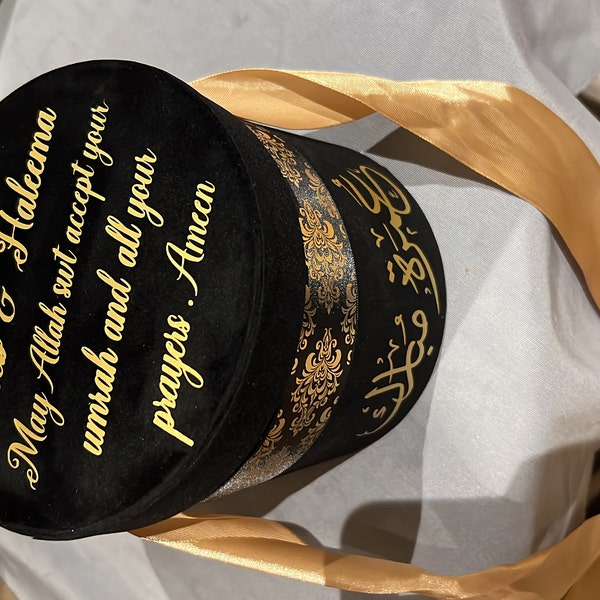 & Haleema
May Allah swt accept your
umrah and all your
prayers . Ameen
عمرة مباركة